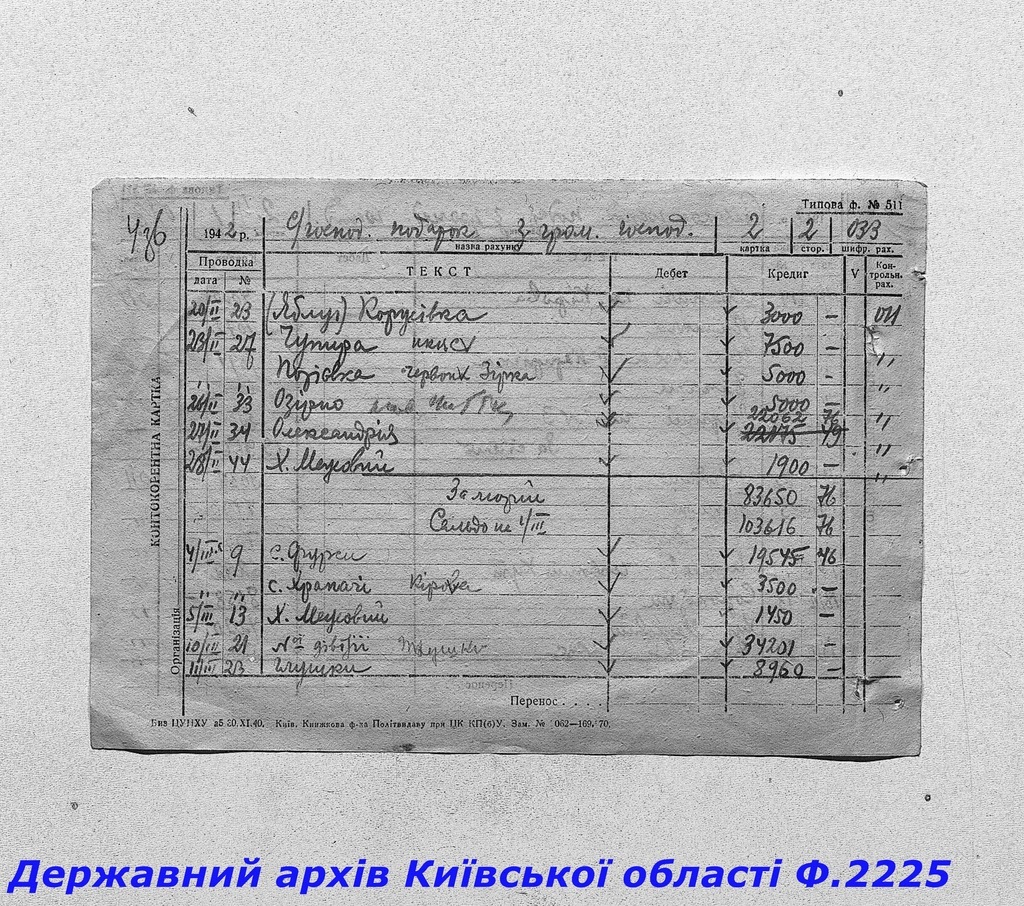 Типова ф. № 511
1942 р. С/господ. податок З гром. господ. 2 2 033
назва рахунку картка стор. шифр. рах.
Проводка ТЕКСТ Дебет Кредит V Контрольн. рах.
дата №
20/II 23 (Яблун) Корусівка 3000 — 011
23/II 27 Чупира 7500 — "
" " Поківка Червона Зірка 5000 — "
26/II 33 Озірно 5000 — "
22062 76
27/II 34 Олександрія 22175 49 "
28/II 44 Х. Меусвий 1900 — "
За лютий 83650 76
Сальдо на 1/III 103616 76
4/III 9 с. Фурси 19545 46
" " с. Храпачі Кірова 3500 —
5/III 13 Х. Меусвий 1450 —
10/III 21 34201 —
11/III 23 Глушки 8960 —
Перенос . . . .
КОНТОКОРЕНТНА КАРТКА
Організація
Вид ЦУНХУ 20.XI.40. Київ, Книжкова ф-ка Політвидаву при ЦК КП(б)У. Зам. № 062—169.
Державний архів Київської області Ф.2225